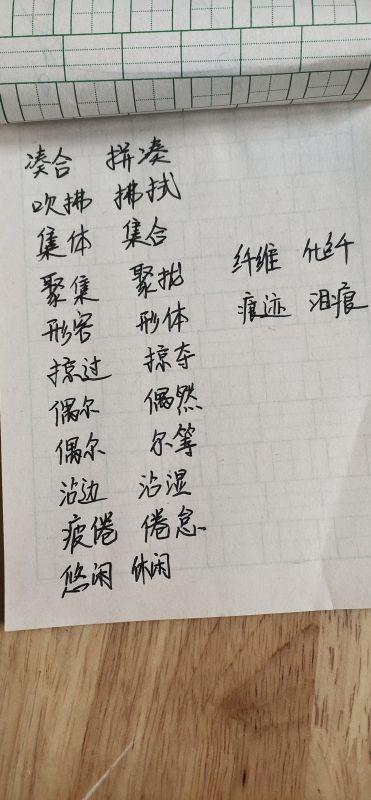 凑合 拼凑
吹拂 拂拭
集体 集合
聚集 聚拢
形容 形体
掠过 掠夺
偶尔 偶然
偶尔 尔等
沾边 沾湿
疲倦 倦怠
悠闲 休闲
纤维 化纤
痕迹 泪痕